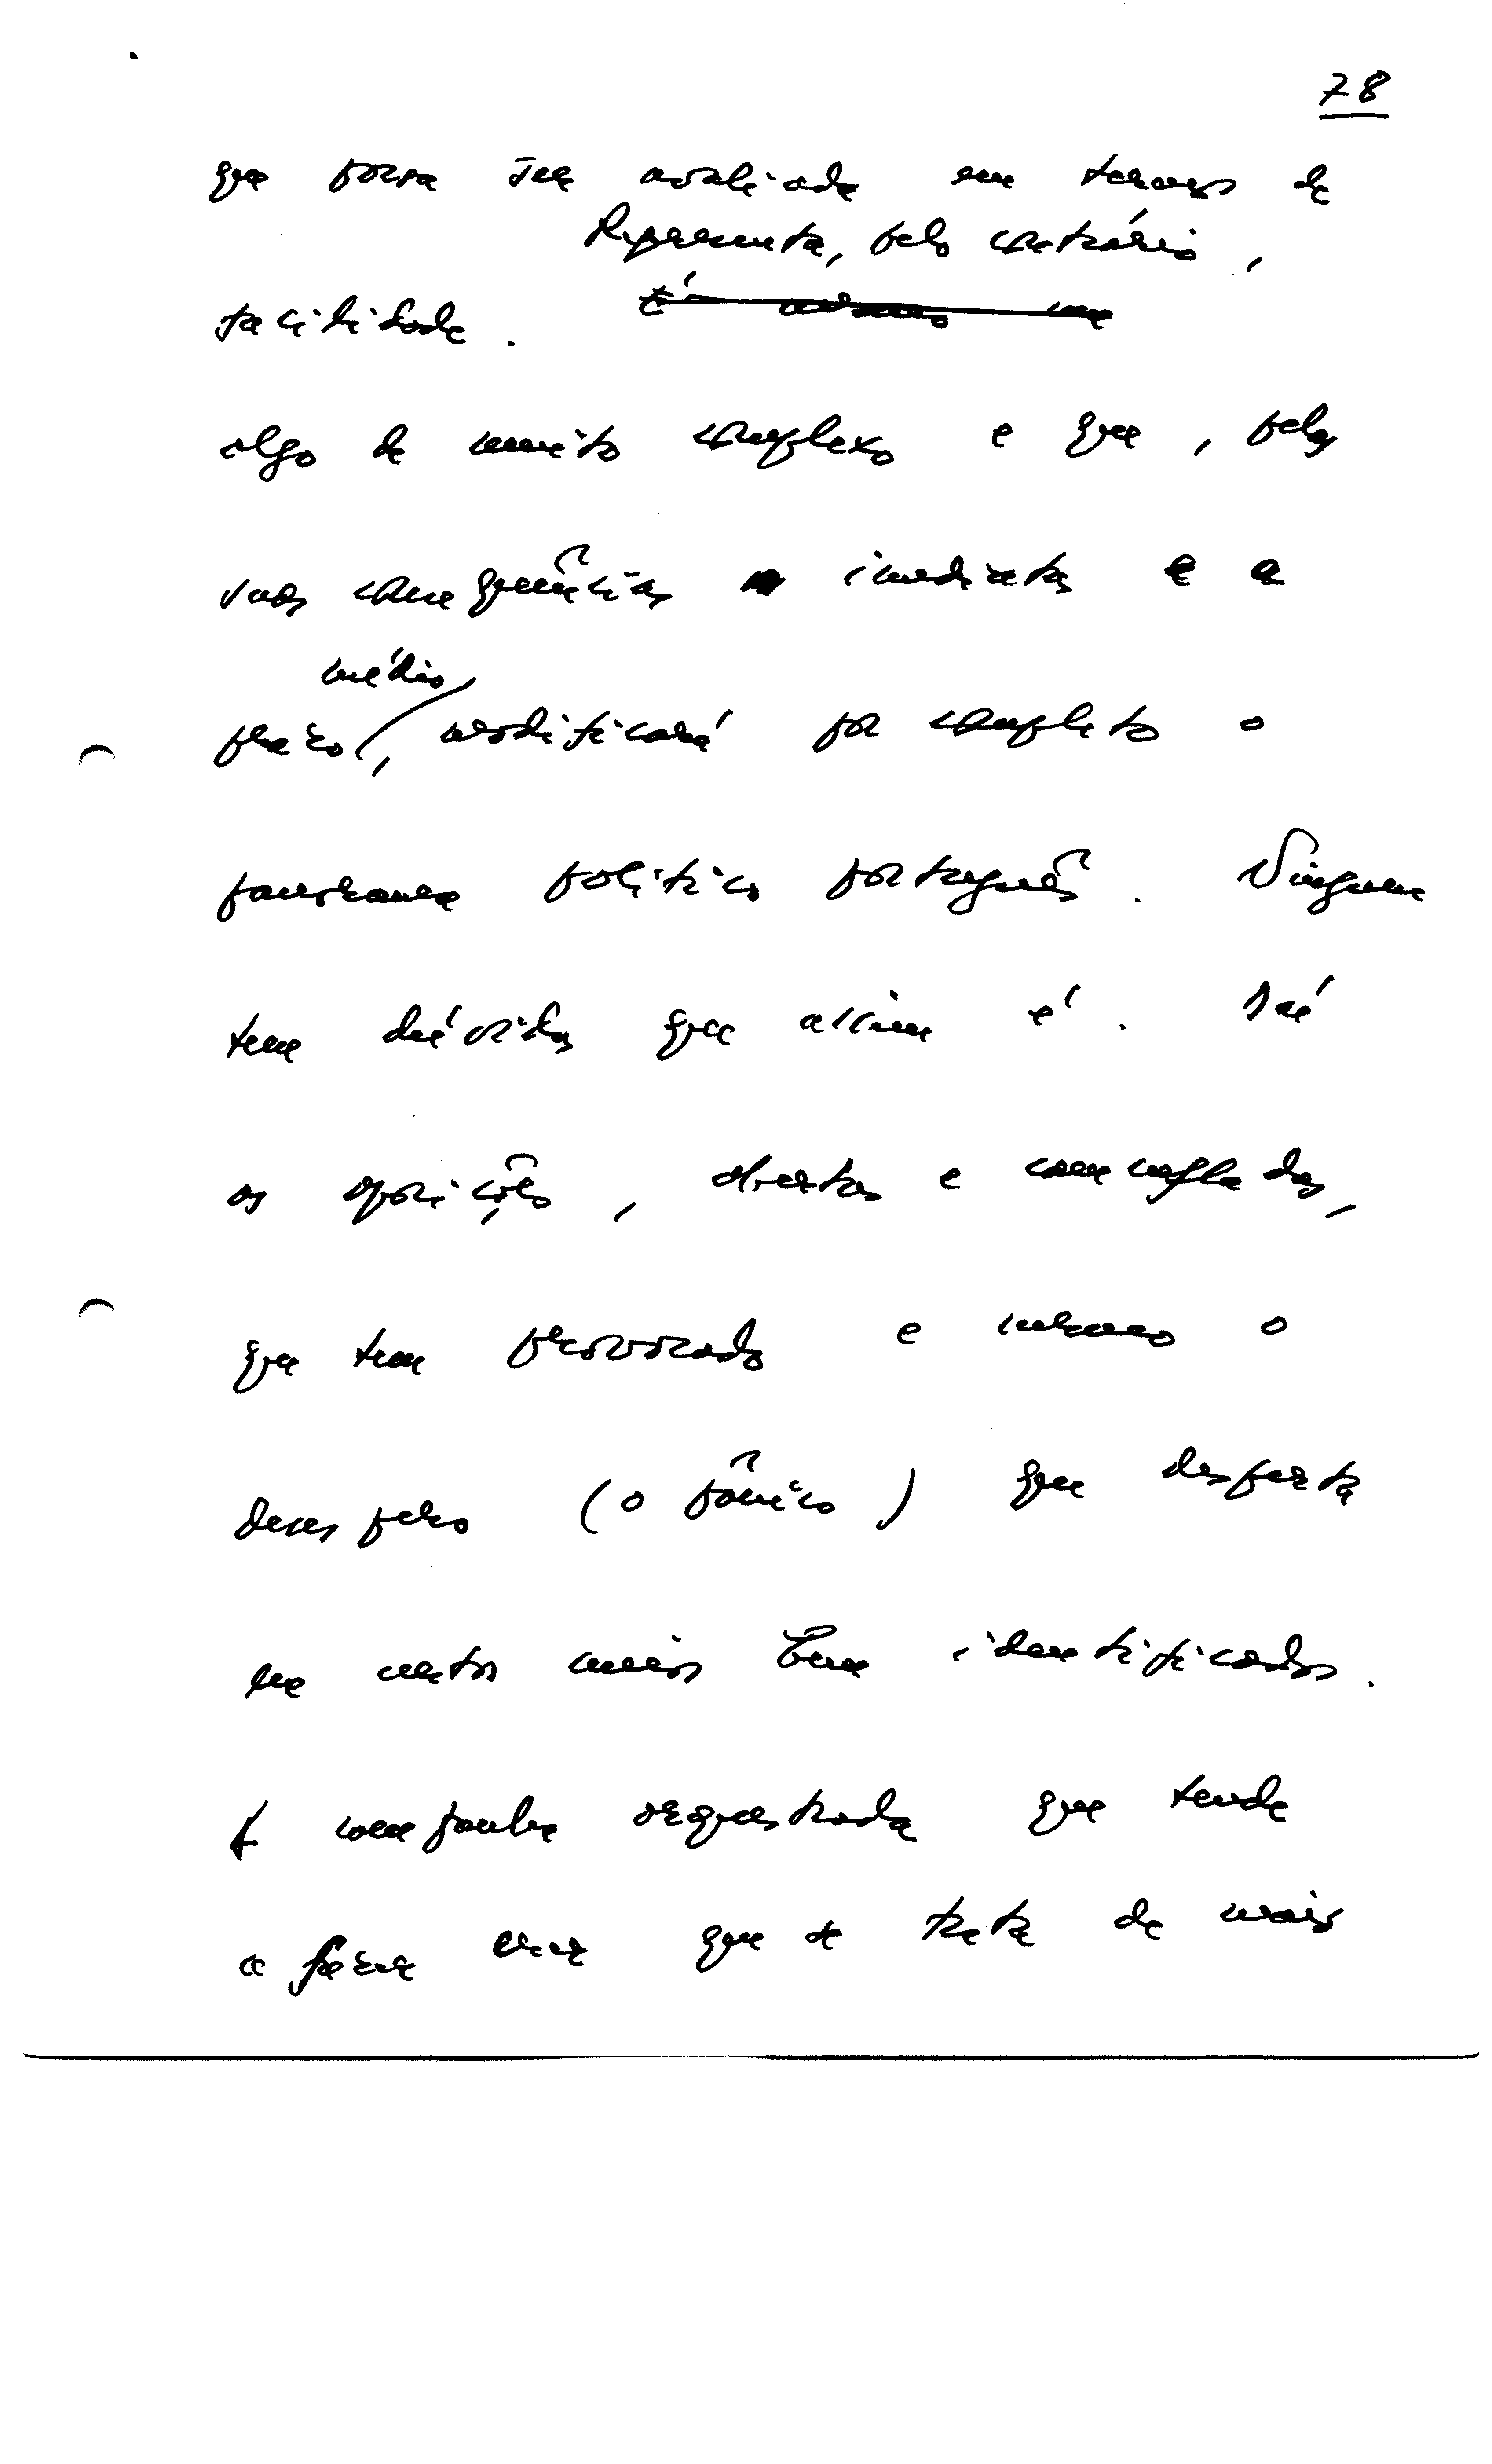 78
que possa ser avaliada em termos de
Representa, pelo contrário,
facilidade. É antes um
algo de muito complexo e que, pelas
suas consequências imediatas e a
médio
prazo, modificará por completo o
panorama político português. Ninguem
tem dúvidas que assim é.
as oposições, abertas e camufladas,
que tem provocado e mesmo o
desespero (o pânico) que desperta
em certos meios bem identificados.
A campanha orquestrada que tende
a fazer crer que se trata de mais